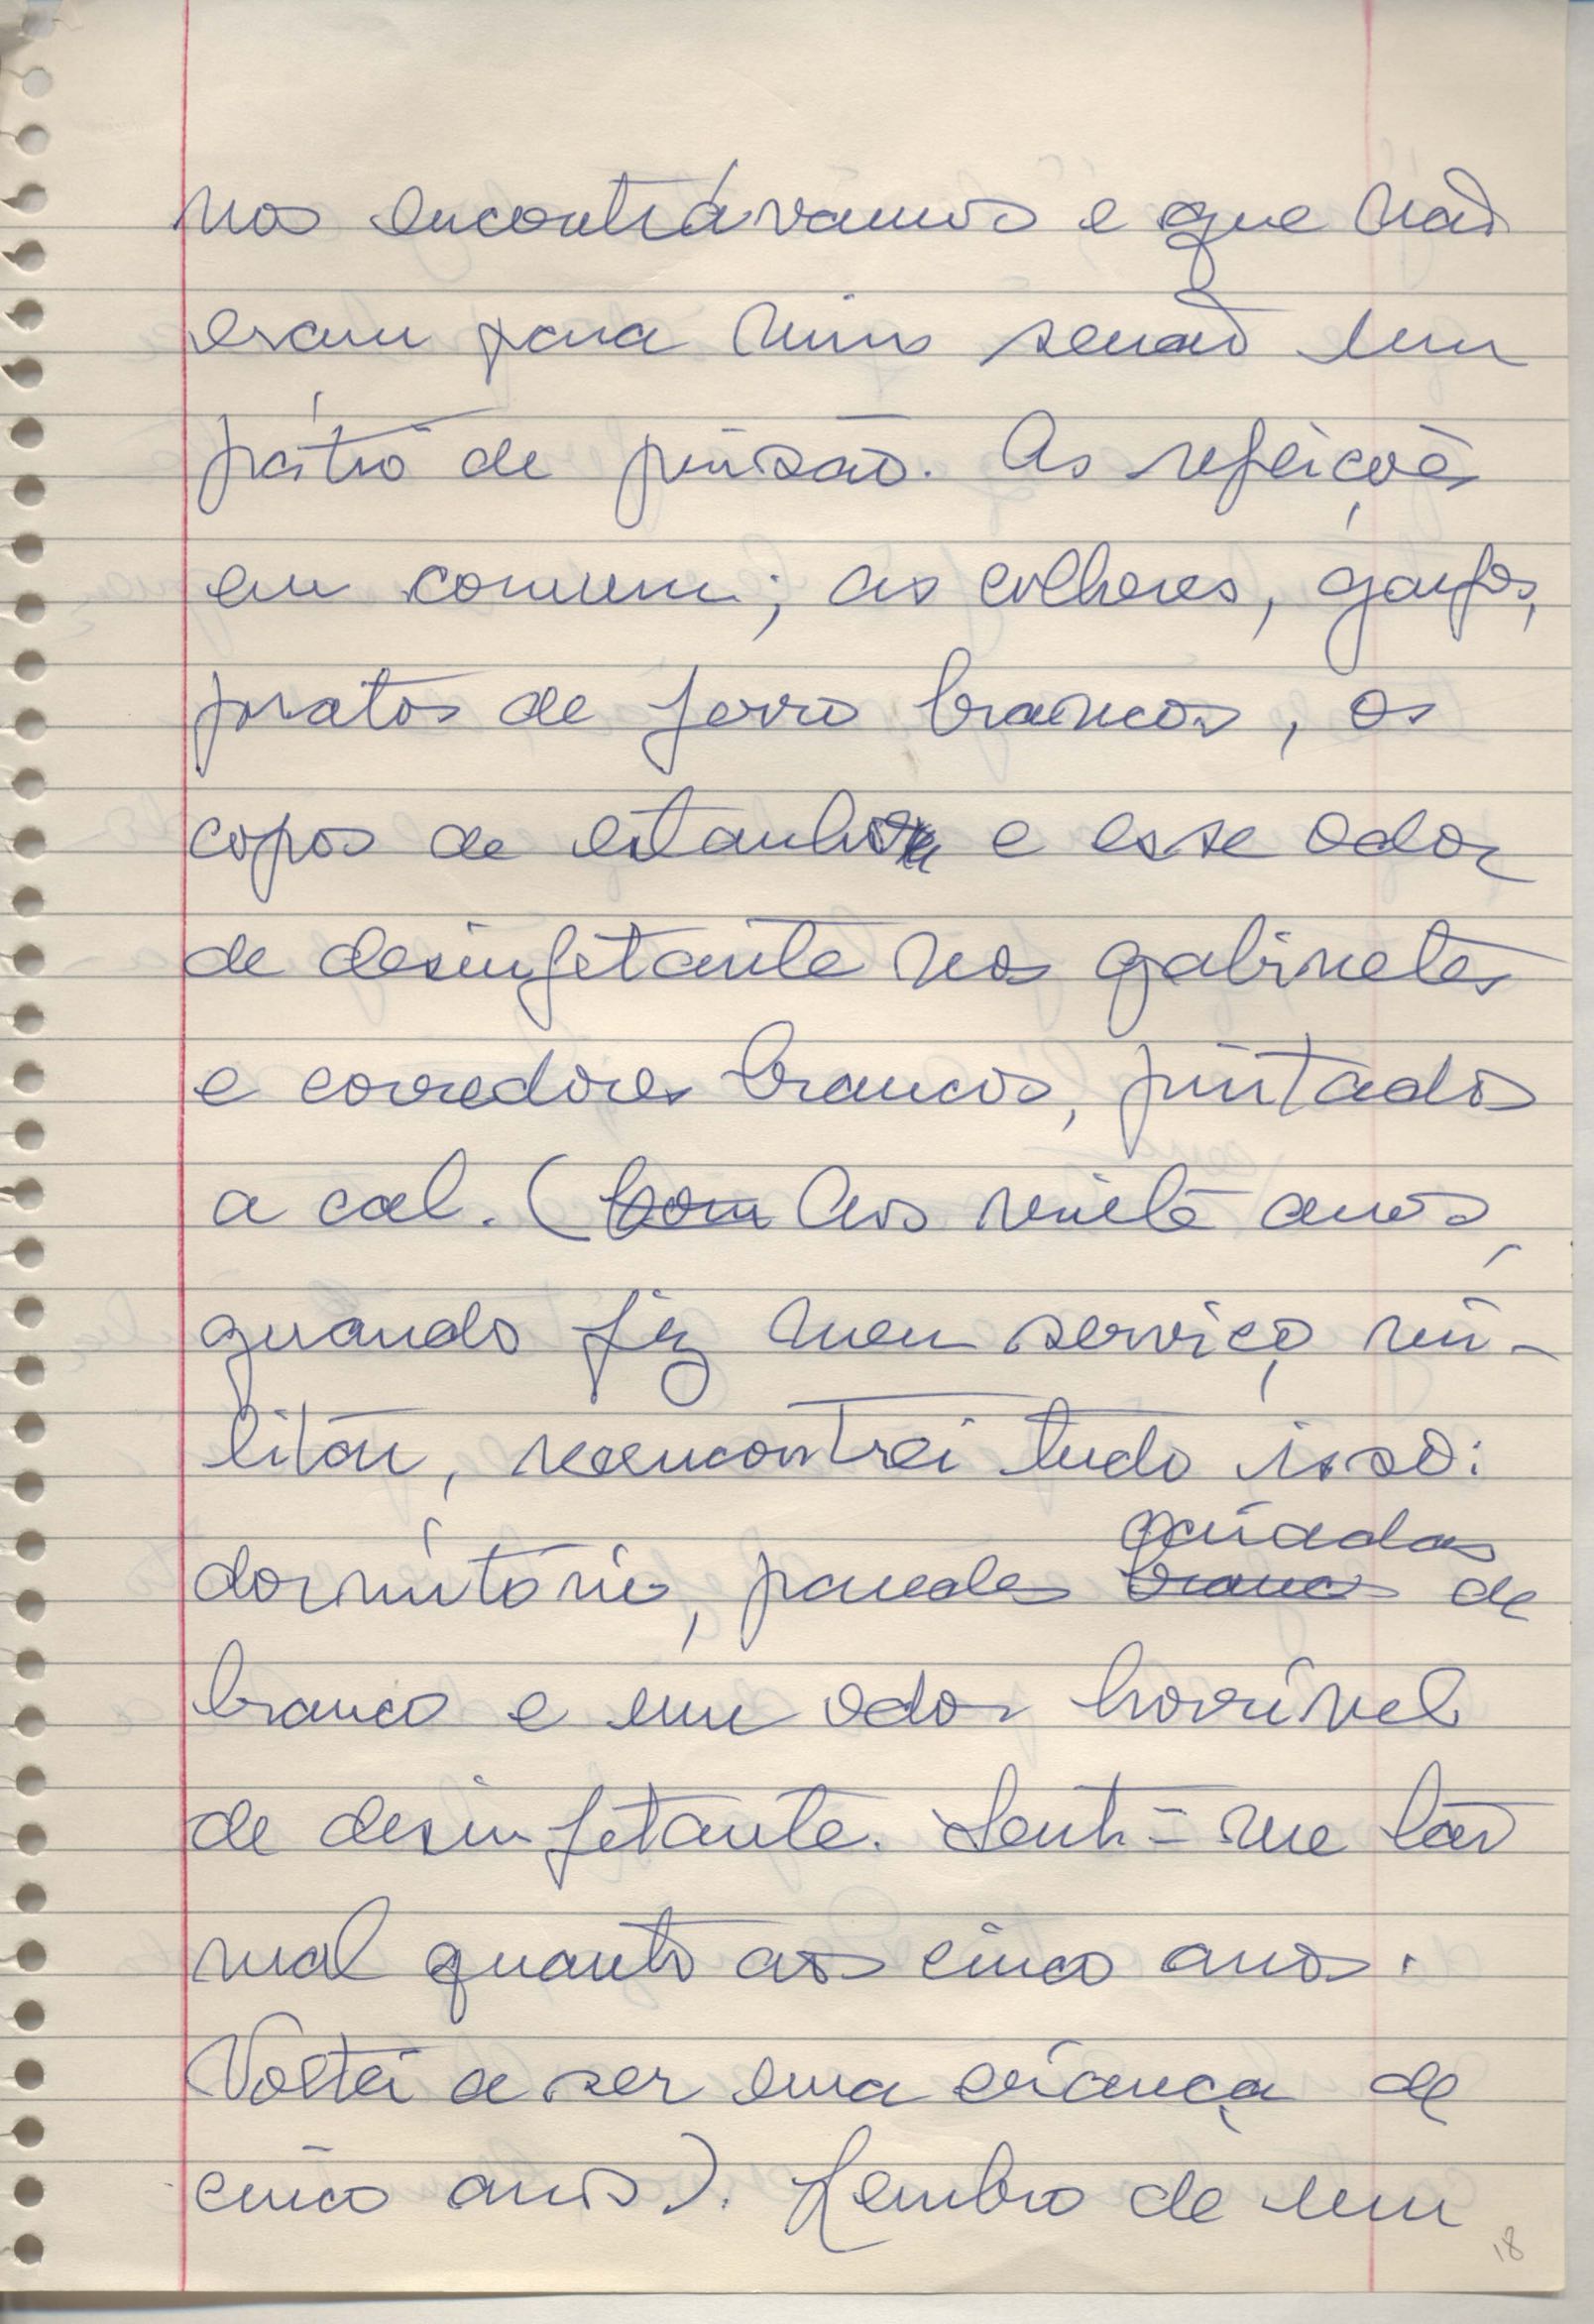 nos encontrávamos e que não
eram para mim senão um
pátio de prisão. As refeições
em comum; as colheres, garfos,
pratos de ferro brancos, os
copos de estanho e esse odor
de desinfetante nos gabinetes
e corredores brancos, pintados
a cal. (Com Aos vinte anos,
quando fiz meu serviço mi-
litar, reencontrei tudo isso:
caiadas
dormitório, paredes brancas de
branco e um odor horrível
de desinfetante. Senti-me tão
mal quanto aos cinco anos.
Voltei a ser uma criança de
cinco anos). Lembro de um
18